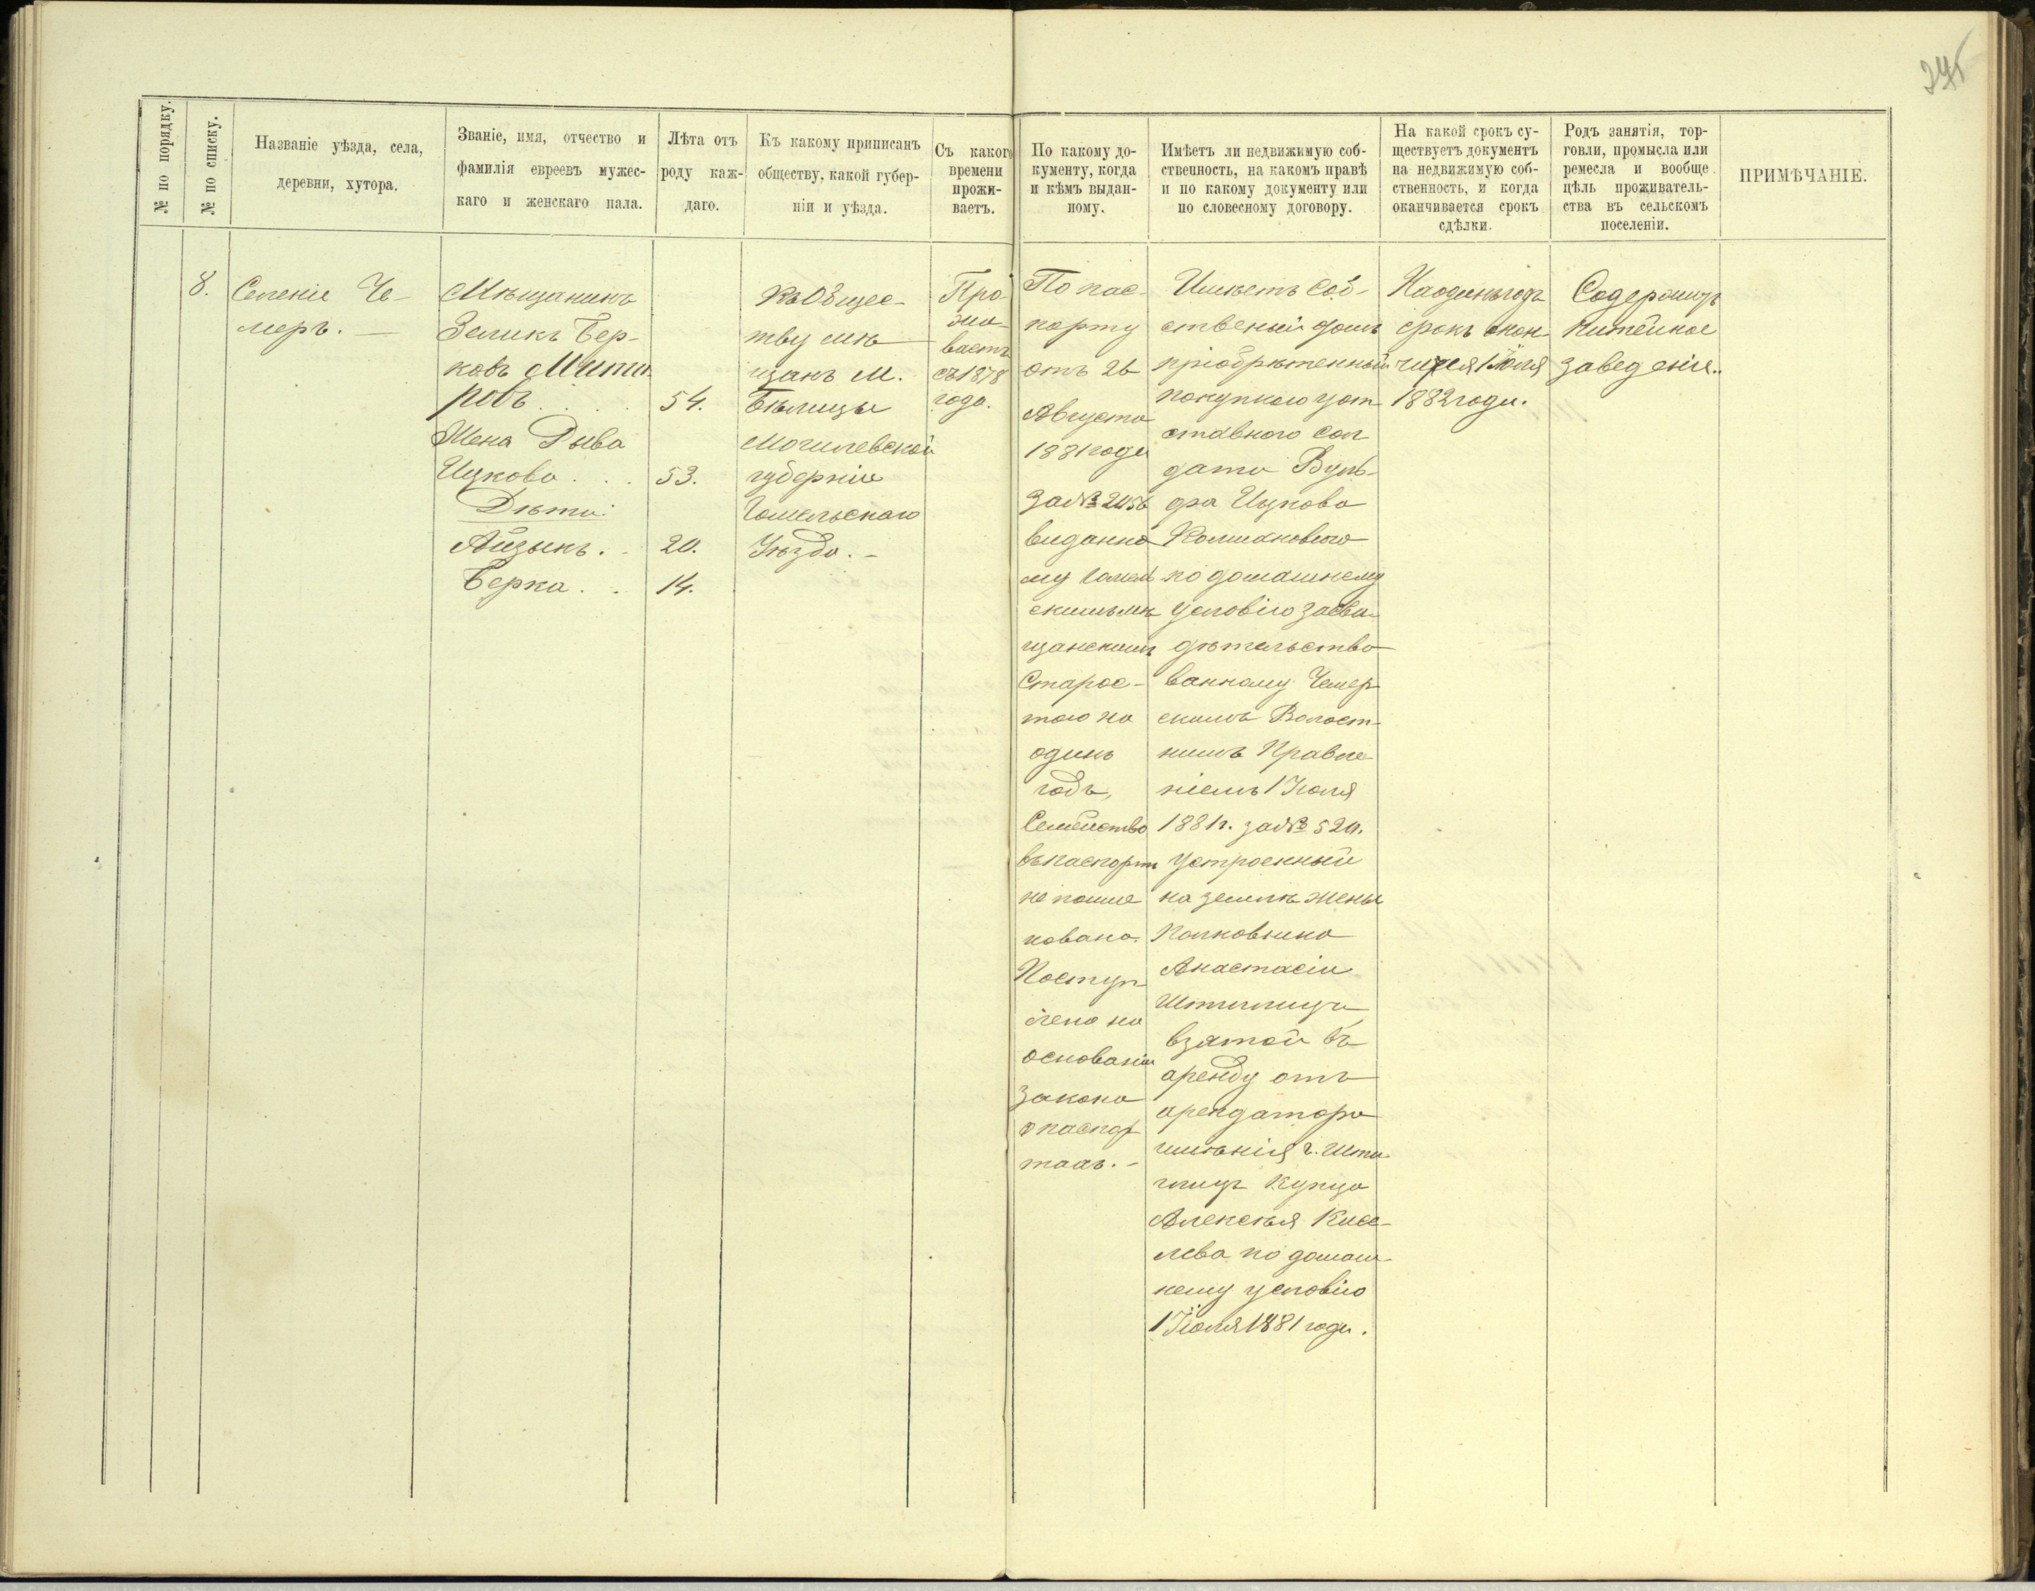 275
№ по порядку.
№ по списку.
Названіе уѣзда, села,
деревни, хутора.
Званіе, имя, отчество и
фамилія евреевъ мужес-
каго и женскаго пала.
Лѣта отъ
роду каж-
даго.
Къ какому приписанъ
обществу, какой губер-
ніи и уѣзда.
Съ какого
времени
прожи-
ваетъ.
По какому до-
кументу, когда
и кѣмъ выдан-
ному.
Имѣетъ ли недвижимую соб-
ственность, на какомъ правѣ
и по какому документу или
по словесному договору.
На какой срокъ су-
ществуетъ документъ
на недвижимую соб-
ственность, и когда
оканчивается срокъ
сдѣлки.
Родъ занятія, тор-
говли, промысла или
ремесла и вообще
цѣль проживатель-
ства въ сельскомъ
поселеніи.
ПРИМѢЧАНІЕ.
8.
Селеніе Че-
меръ. —
Мѣщанинъ
Зеликъ Бер-
ковъ
ровъ . . . 54.
Жена Рыва
Ицкова . . . 53.
Дѣти:
Айзыкъ . - 20.
Берка . . 14.
Къ Общес-
тву мѣ-
щанъ М.
Бѣлицы
Могилевской
губерніи
Гомельскаго
Уѣзда. —
Про-
жи-
ваетъ
съ 1878
года.
По пас-
порту
отъ 26
Августа
1881 года
за № 2056
виданно
му Гомел
скимъ мѣ
щанскимъ
Старос-
тою на
одинъ
годъ,
Семейство
въ паспортѣ
не поиме
новано.
Поступ
лено на
основаніи
Закона
о паспор
тахъ. —
Имѣетъ соб-
ственый домъ
пріобрѣтенный
покупкою у от
ставного сол
дата Вуль-
фа Ицкова
Колмановского
по домашнему
условію засви-
дѣтельство-
ванному Чемер
скимъ Волост-
нимъ Правле-
ніемъ 1 Іюля
1881 г. за № 520.
устроенный
на землѣ жены
Полковника
Анастасіи
Штиглицъ
взятой въ
аренду отъ
арендатора
имѣнія г. Шти-
глицъ Купца
Алексѣя Кисе-
лева по домаш-
нему условію
1 Іюля 1881 года.
На одинъ годъ
срокъ окон-
чится 1 Іюля
1882 года.
Содержитъ
питейное
заведеніе.